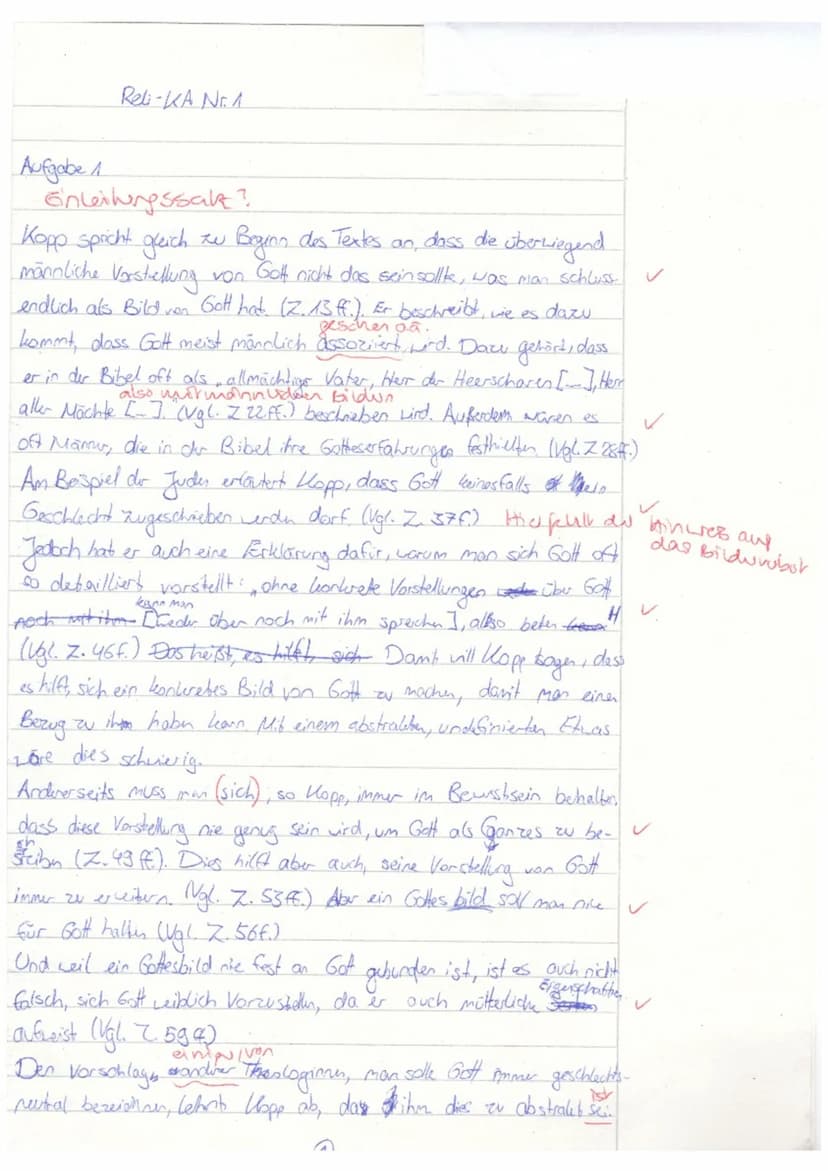 Reli-KA Nr. 1
Aufgabe 1
Einleitungssatz?
Kopp spricht gleich zu Beginn des Textes an, dass die überwiegend
männliche Vorstellung von Gott nicht das sein sollte, was man schluss-
endlich als Bild von Gott hat. (Z. 13 ff.). Er beschreibt, wie es dazu
gesehen
kommt, dass Gott meist männlich assoziiert wird. Dazu gehört, dass
er in der Bibel oft als „allmächtige Vater, Herr der Heerscharen [...], Herr
also mit männlichen Bildern
aller Mächte [...]. (Vgl. Z 22 ff.) beschrieben wird. Außerdem waren es
oft Männer, die in der Bibel ihre Gotteserfahrungen festhielten (Vgl. Z 28ff.)
Am Beispiel der Juden erläutert Kopp, dass Gott keinesfalls ein
Geschlecht zugeschrieben werden darf (Vgl. Z. 37f.) Hier fehlt der Hinweis auf
das Bilderverbot
Jedoch hat er auch eine Erklärung dafür, warum man sich Gott oft
so detailliert vorstellt: „ohne konkrete Vorstellungen über Gott
kann man
noch mit ihm [weder über noch mit ihm sprechen], also beten "
(Vgl. Z. 46f.) Das heißt, es hilft, sich Damit will Kopp sagen, dass
es hilft, sich ein konkretes Bild von Gott zu machen, damit man einen
Bezug zu ihm haben kann. Mit einem abstrakten, undefinierten Etwas
wäre dies schwierig.
Andererseits muss man (sich), so Kopp, immer im Bewusstsein behalten,
dass diese Vorstellung nie genug sein wird, um Gott als Ganzes zu be-
schreiben (Z. 49 ff.). Dies hilft aber auch, seine Vorstellung von Gott
immer zu erweitern. (Vgl. Z. 53ff.) Aber ein Gottesbild soll man nie
für Gott halten (Vgl. Z. 56f.)
Und weil ein Gottesbild nie fest an Gott gebunden ist, ist es auch nicht
Eigenschaften
falsch, sich Gott weiblich vorzustellen, da er auch mütterliche
aufweist (Vgl. Z. 59 ff)
einiger/von
Den Vorschlag, Theologinnen, man solle Gott immer geschlechts-
ist
neutral bezeichnen, lehnt Kopp ab, da ihm dies zu abstrakt sei.
1